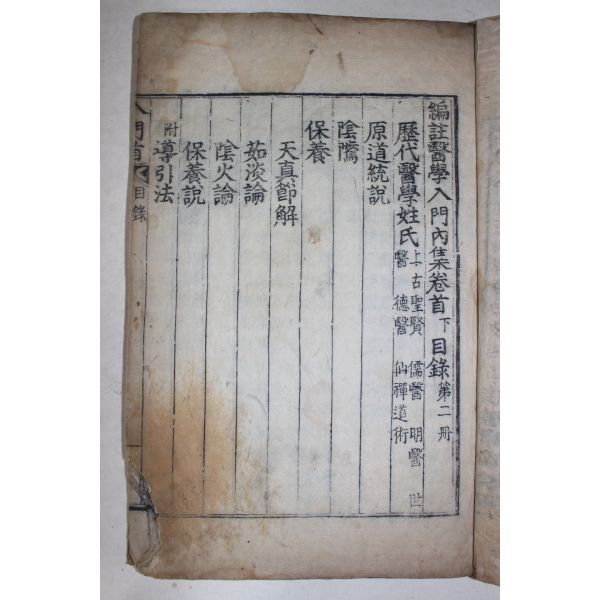 編註醫學入門內集卷首下目錄 第二冊
歷代醫學姓氏 上古聖賢 儒醫 明醫 世
醫 德醫 仙禪道術
原道統說
陰騭
保養
天真節解
茹淡論
陰火論
保養說
附導引法
入門首下目錄